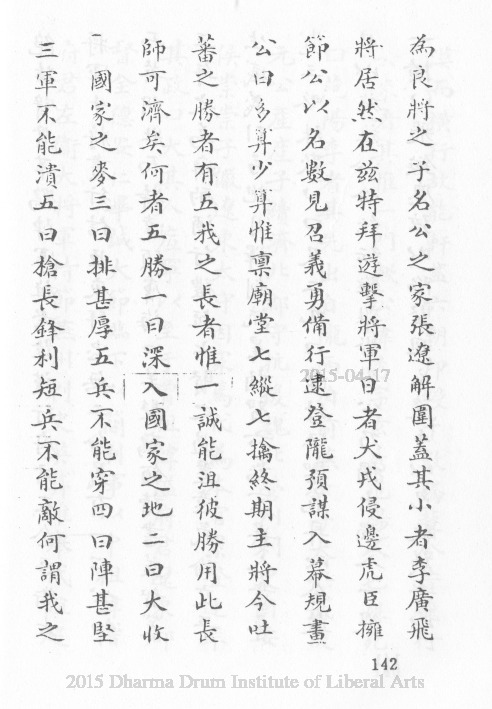 為良將之子名公之家張遼解圍蓋其小者李廣飛
將居然在茲特拜遊擊將軍日者犬戎侵邊虎臣擁
節公以名數見召義勇備行逮登隴預謀入幕規畫
公曰多算少算惟禀廟堂七縱七擒終期主將今吐
蕃之勝者有五我之長者惟一誠能沮彼勝用此長
師可濟矣何者五勝一曰深入國家之地二曰大收
國家之麥三曰排甚厚五兵不能穿四曰陣甚堅
三軍不能潰五曰搶長鋒利短兵不能敵何謂我之
142
2015-04-17
2015 Dharma Drum Institute of Liberal Arts